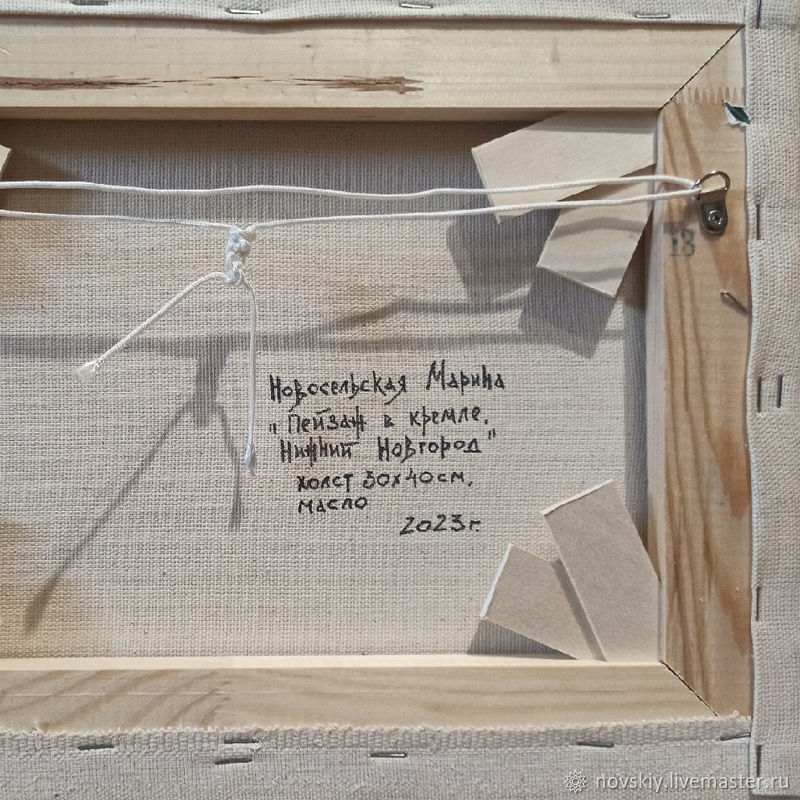 13
Новосельская Марина
„Пейзаж в кремле.
Нижний Новгород"
холст 30х40см,
масло
2023г.
novskiy.livemaster.ru